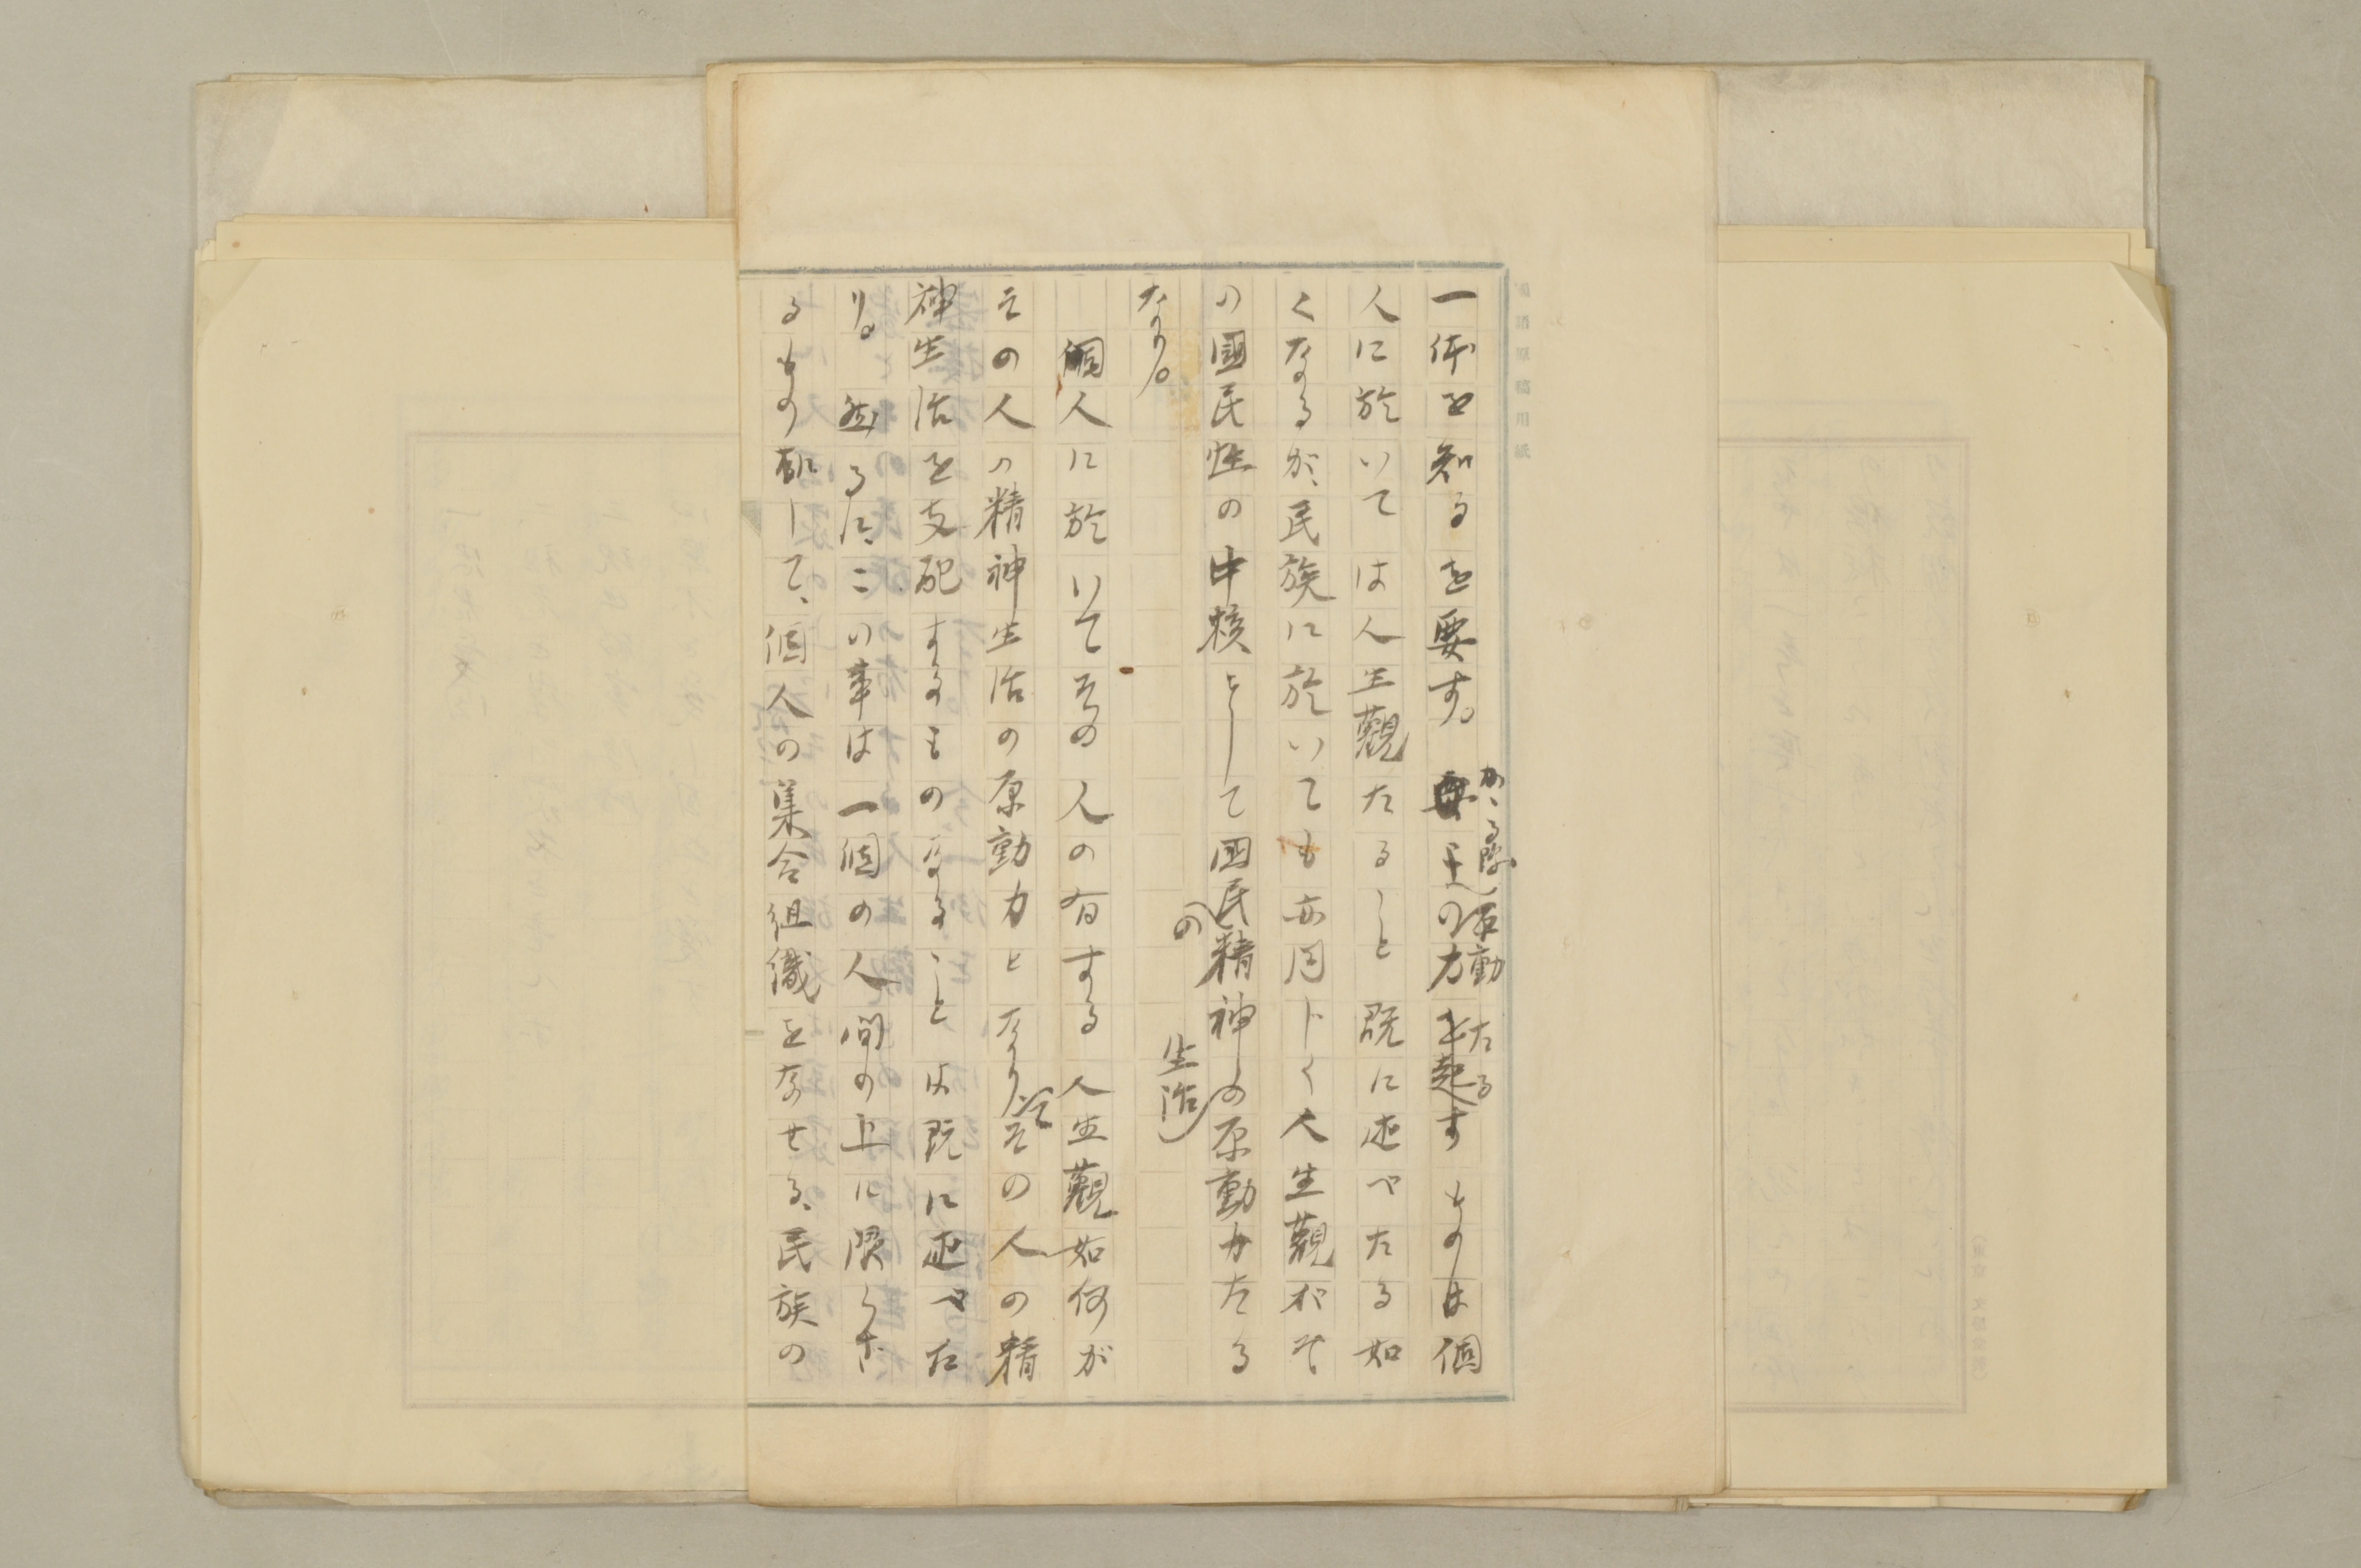 一体を知るを要す。その力を起すものは個
かゝる際し活動たる
人に於いては人生觀たること既に述べたる如
くなるが、民族に於いても亦同じく人生觀がそ
の國民性の中核として国民精神の原動力たる
の
生活
なり。
個人に於いてその人の有する人生觀如何が
その人の精神生活の原動力となりてその人の精
神生活を支配するものなることは既に述べた
り。然るに、この事は一個の人間の上に限らざ
るもの
して、個人の集合組織をなせる、民族の